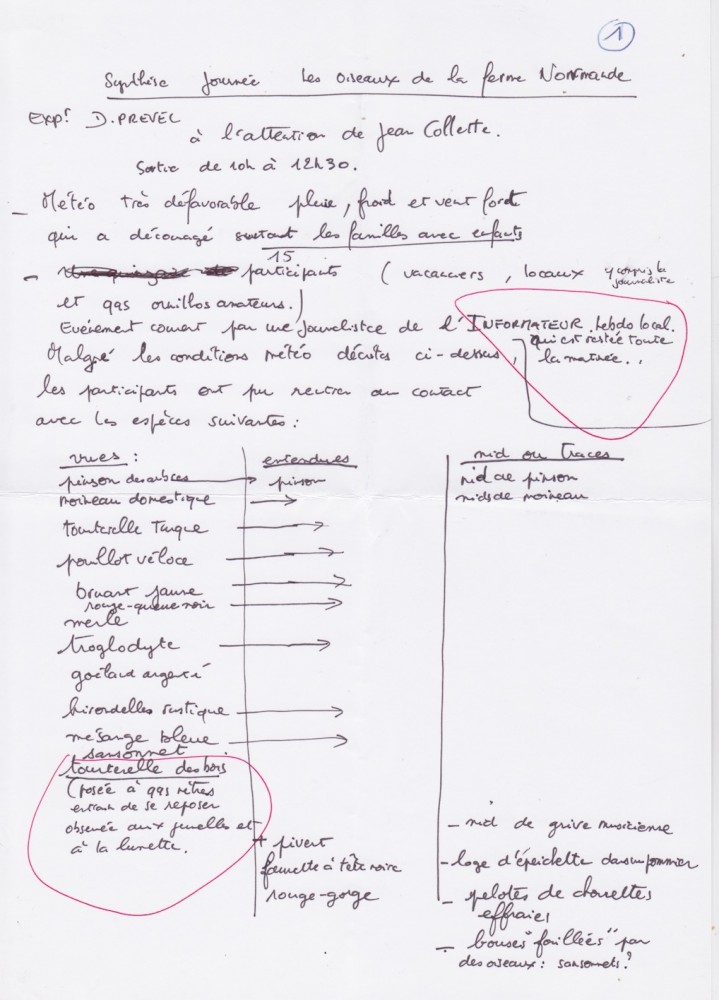 1
Synthèse Journée Les oiseaux de la ferme Normande
Expr D. PREVEL
à l'attention de Jean Collette.
Sortie de 10h à 12h30.
- Météo très défavorable pluie, froid et vent fort
qui a découragé surtout les familles avec enfants
- 15 participants (vacanciers, locaux y compris la journaliste
et qqs ornithos amateurs.)
Evénement couvert par une journaliste de l'INFORMATEUR. hebdo local.
qui est restée toute
la matinée..
Malgré les conditions météo décrites ci-dessus,
les participants ont pu rentrer au contact
avec les espèces suivantes :
vues : entendues nid ou traces
pinson des arbres → pinson nid de pinson
moineau domestique → nids de moineau
tourterelle turque →
pouillot véloce →
bruant jaune →
rouge-queue noir →
merle
troglodyte →
goéland argenté
hirondelles rustique →
mésange bleue →
sansonnet
tourterelle des bois
(posée à qqs mètres
entrain de se reposer
observée aux jumelles et
à la lunette.
+ pivert
fauvette à tête noire
rouge-gorge
- nid de grive musicienne
- loge d'épeichette dans un pommier
- pelotes de chouettes
effraies
- bouses "fouillées" par
des oiseaux : sansonnets ?